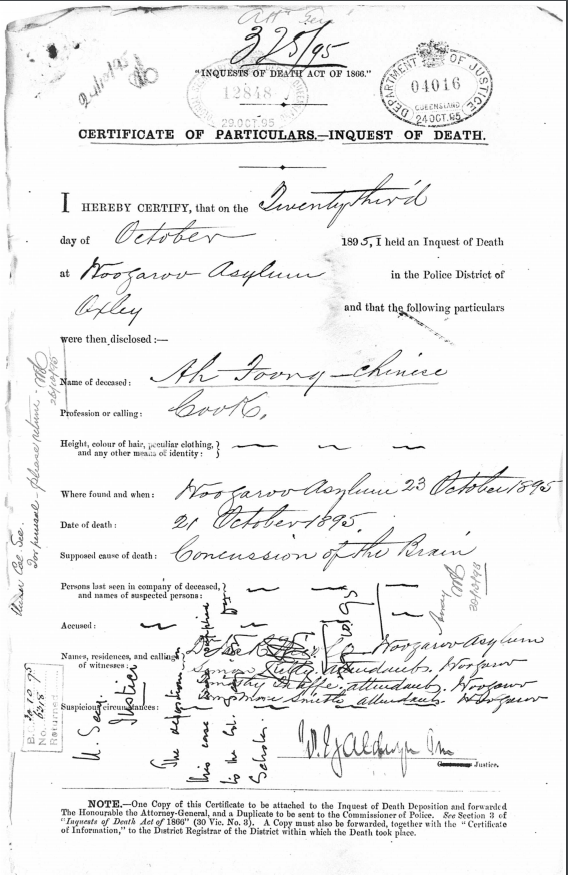 325/95
"INQUESTS OF DEATH ACT OF 1866."
24/10/95
12848
29.OCT.95
DEPARTMENT OF JUSTICE
04016
QUEENSLAND
24 OCT. 95
CERTIFICATE OF PARTICULARS.—INQUEST OF DEATH.
I HEREBY CERTIFY, that on the Twenty third
day of October 1895, I held an Inquest of Death
at Woogaroo Asylum in the Police District of
Oxley and that the following particulars
were then disclosed:—
Name of deceased: Ah Foong - Chinese
Profession or calling: Cook.
Height, colour of hair, peculiar clothing,
and any other means of identity:
Where found and when: Woogaroo Asylum 23 October 1895
Date of death: 21 October 1895.
Supposed cause of death: Concussion of the Brain
Persons last seen in company of deceased,
and names of suspected persons:
Accused:
Names, residences, and calling Woogaroo Asylum
of witnesses: attendants. Woogaroo
attendants. Woogaroo
Suspicious circumstances: Smith attendants. Woogaroo
Justice.
U. Secy.
Justice
The depositions in
this case
to the
for perusal - please return.
26/10/95
Returned
NOTE.—One Copy of this Certificate to be attached to the Inquest of Death Deposition and forwarded
The Honourable the Attorney-General, and a Duplicate to be sent to the Commissioner of Police. See Section 3 of
"Inquests of Death Act of 1866" (30 Vic. No. 3). A Copy must also be forwarded, together with the "Certificate
of Information," to the District Registrar of the District within which the Death took place.